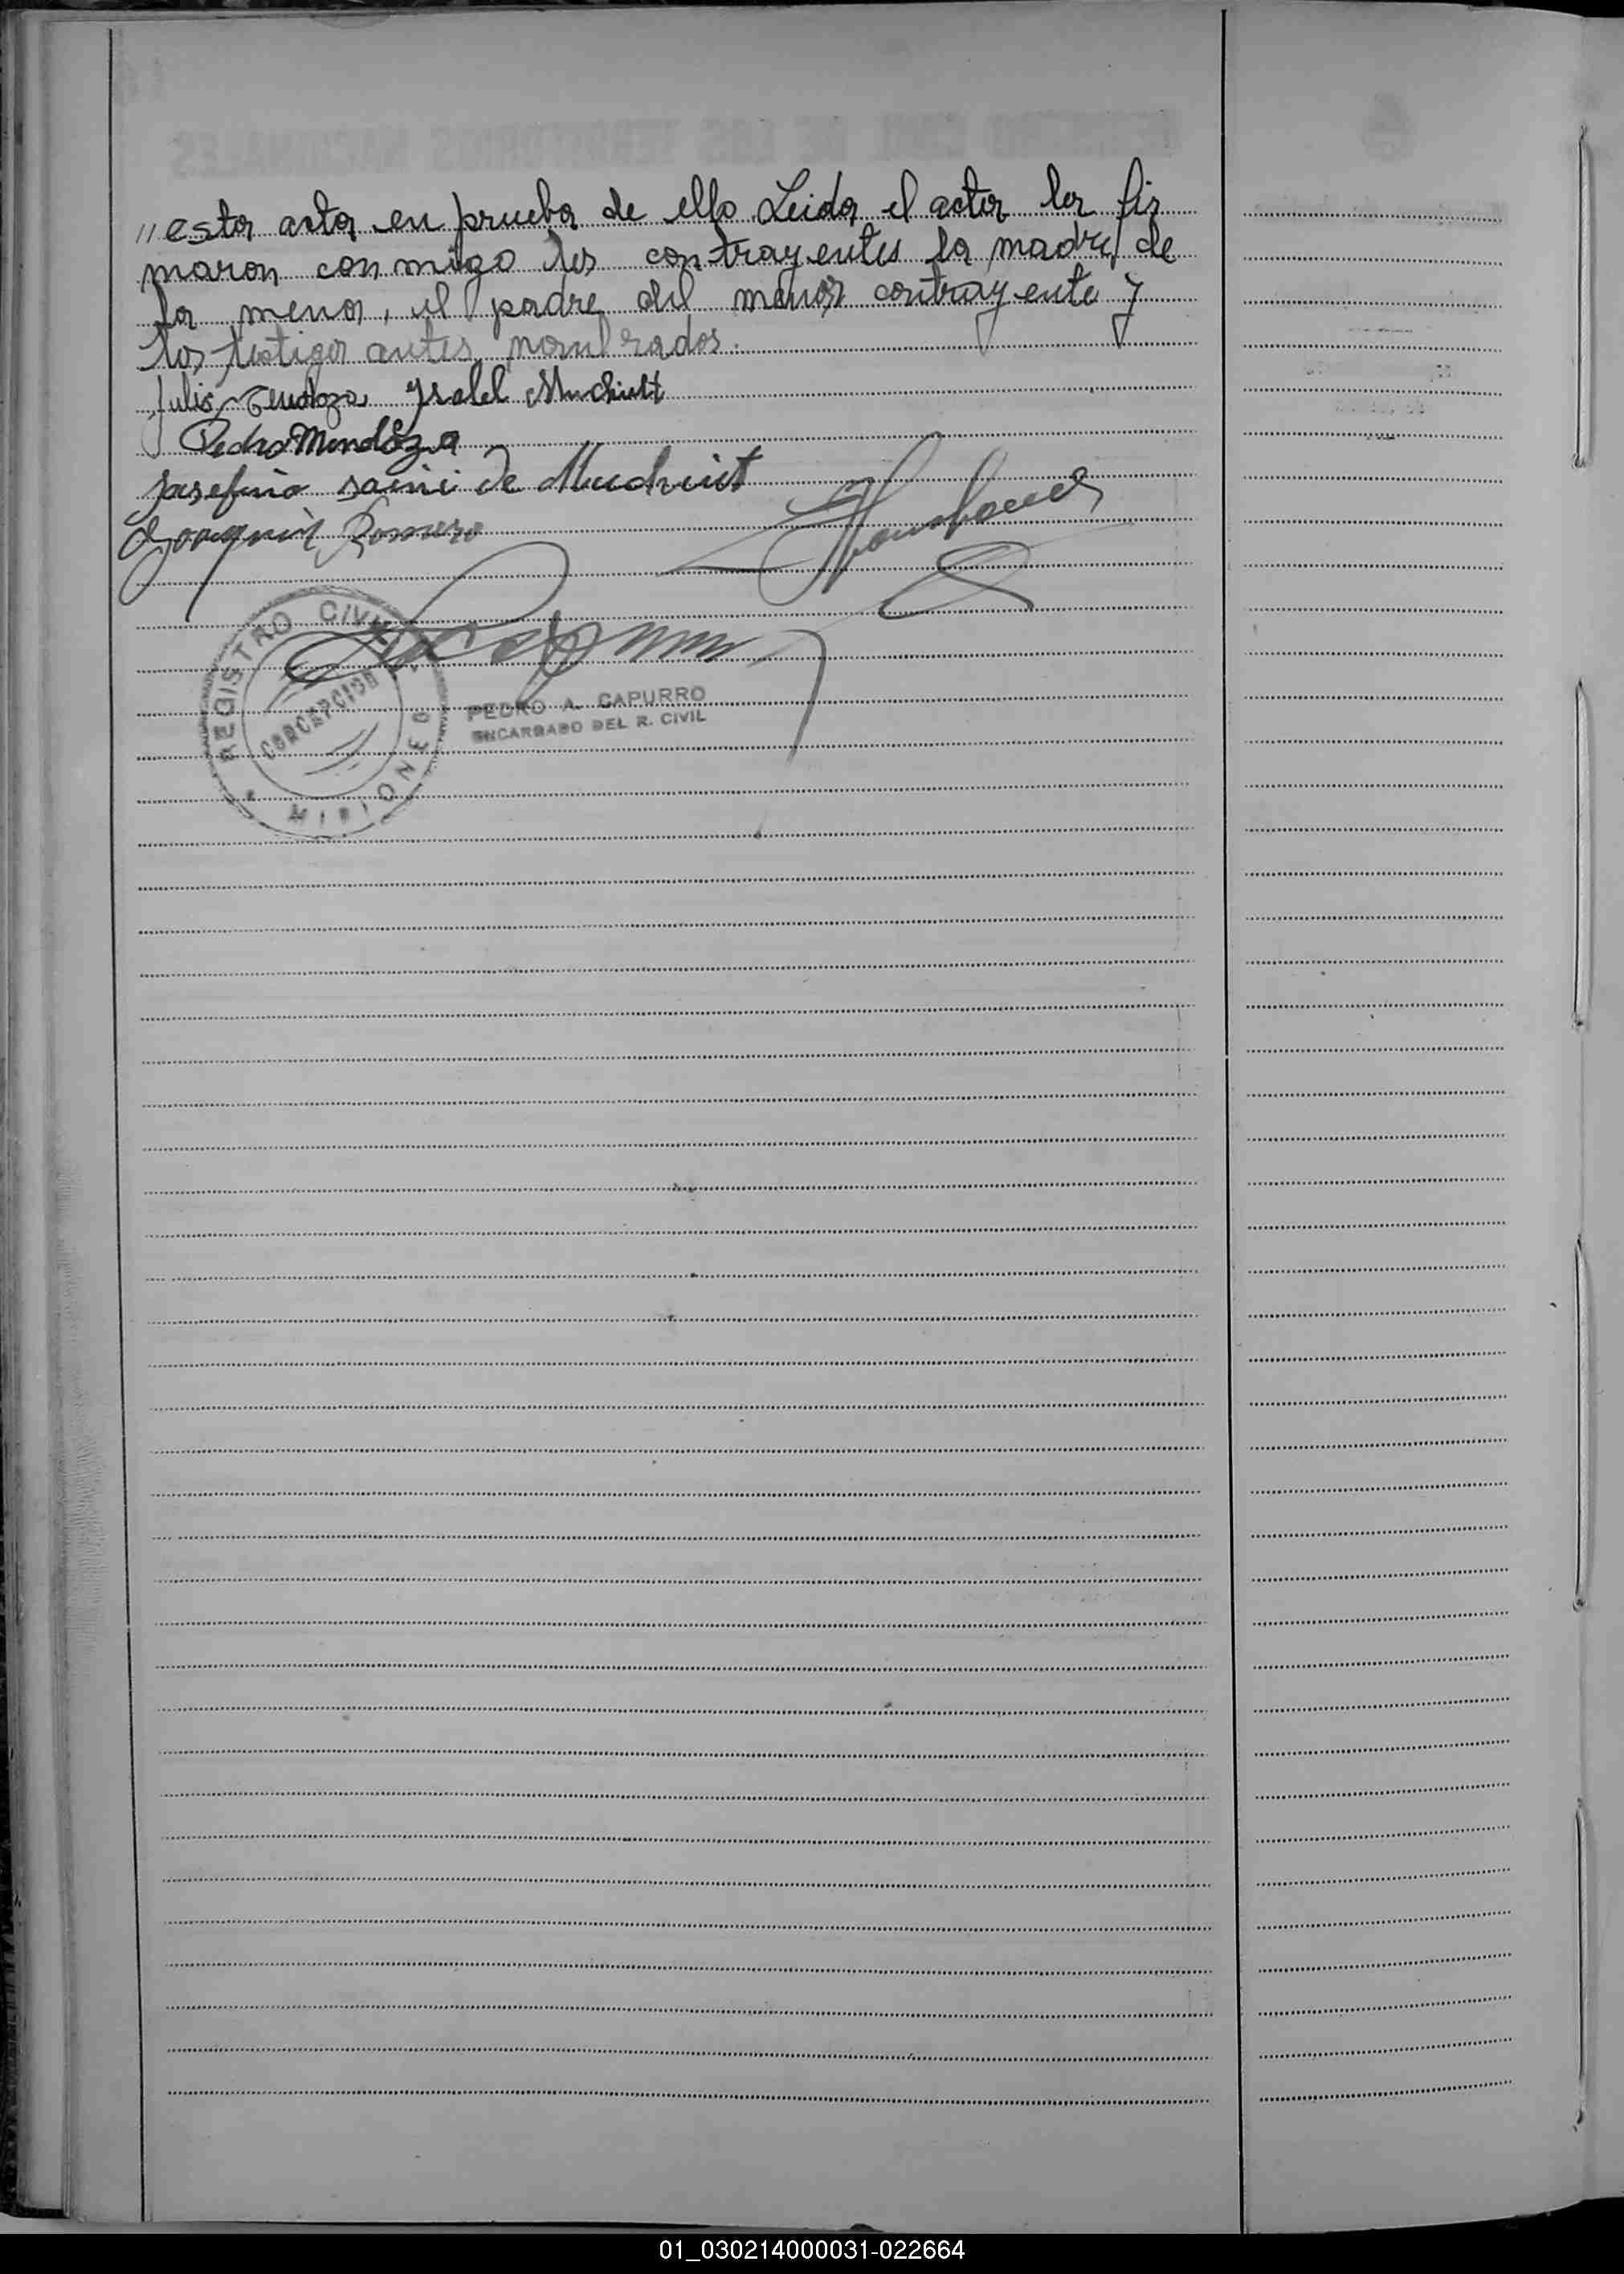 " esta acta en prueba de ello Leida el acta la fir
maron con migo los contrayentes la madre de
la menor, el padre del menor contrayente y
los testigos antes nombrados.
Julio Mendoza Ysabel Muchiutt
Pedro Mendoza
Josefina saini de Muchiut
Joaquin Romero
REGISTRO CIVIL
CONCEPCION
MISIONES
PEDRO A. CAPURRO
ENCARGADO DEL R. CIVIL
01_030214000031-022664